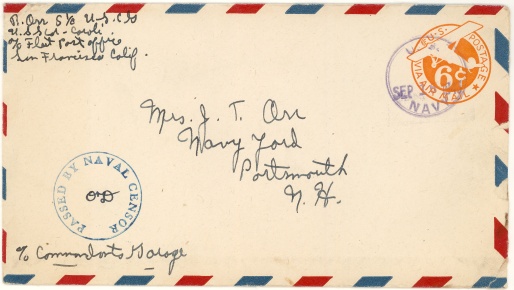 R. Orr S/2 U.S.C.G
U.S.S. Cor-Caroli
c/o Fleet Post office
San Francisco Calif.
U.S. POSTAGE
6¢
VIA AIR MAIL
SEP
NAVY
Mrs. J. T. Orr
Navy Yard
Portsmouth
N. H.
PASSED BY NAVAL CENSOR
c/o Commandants Garage